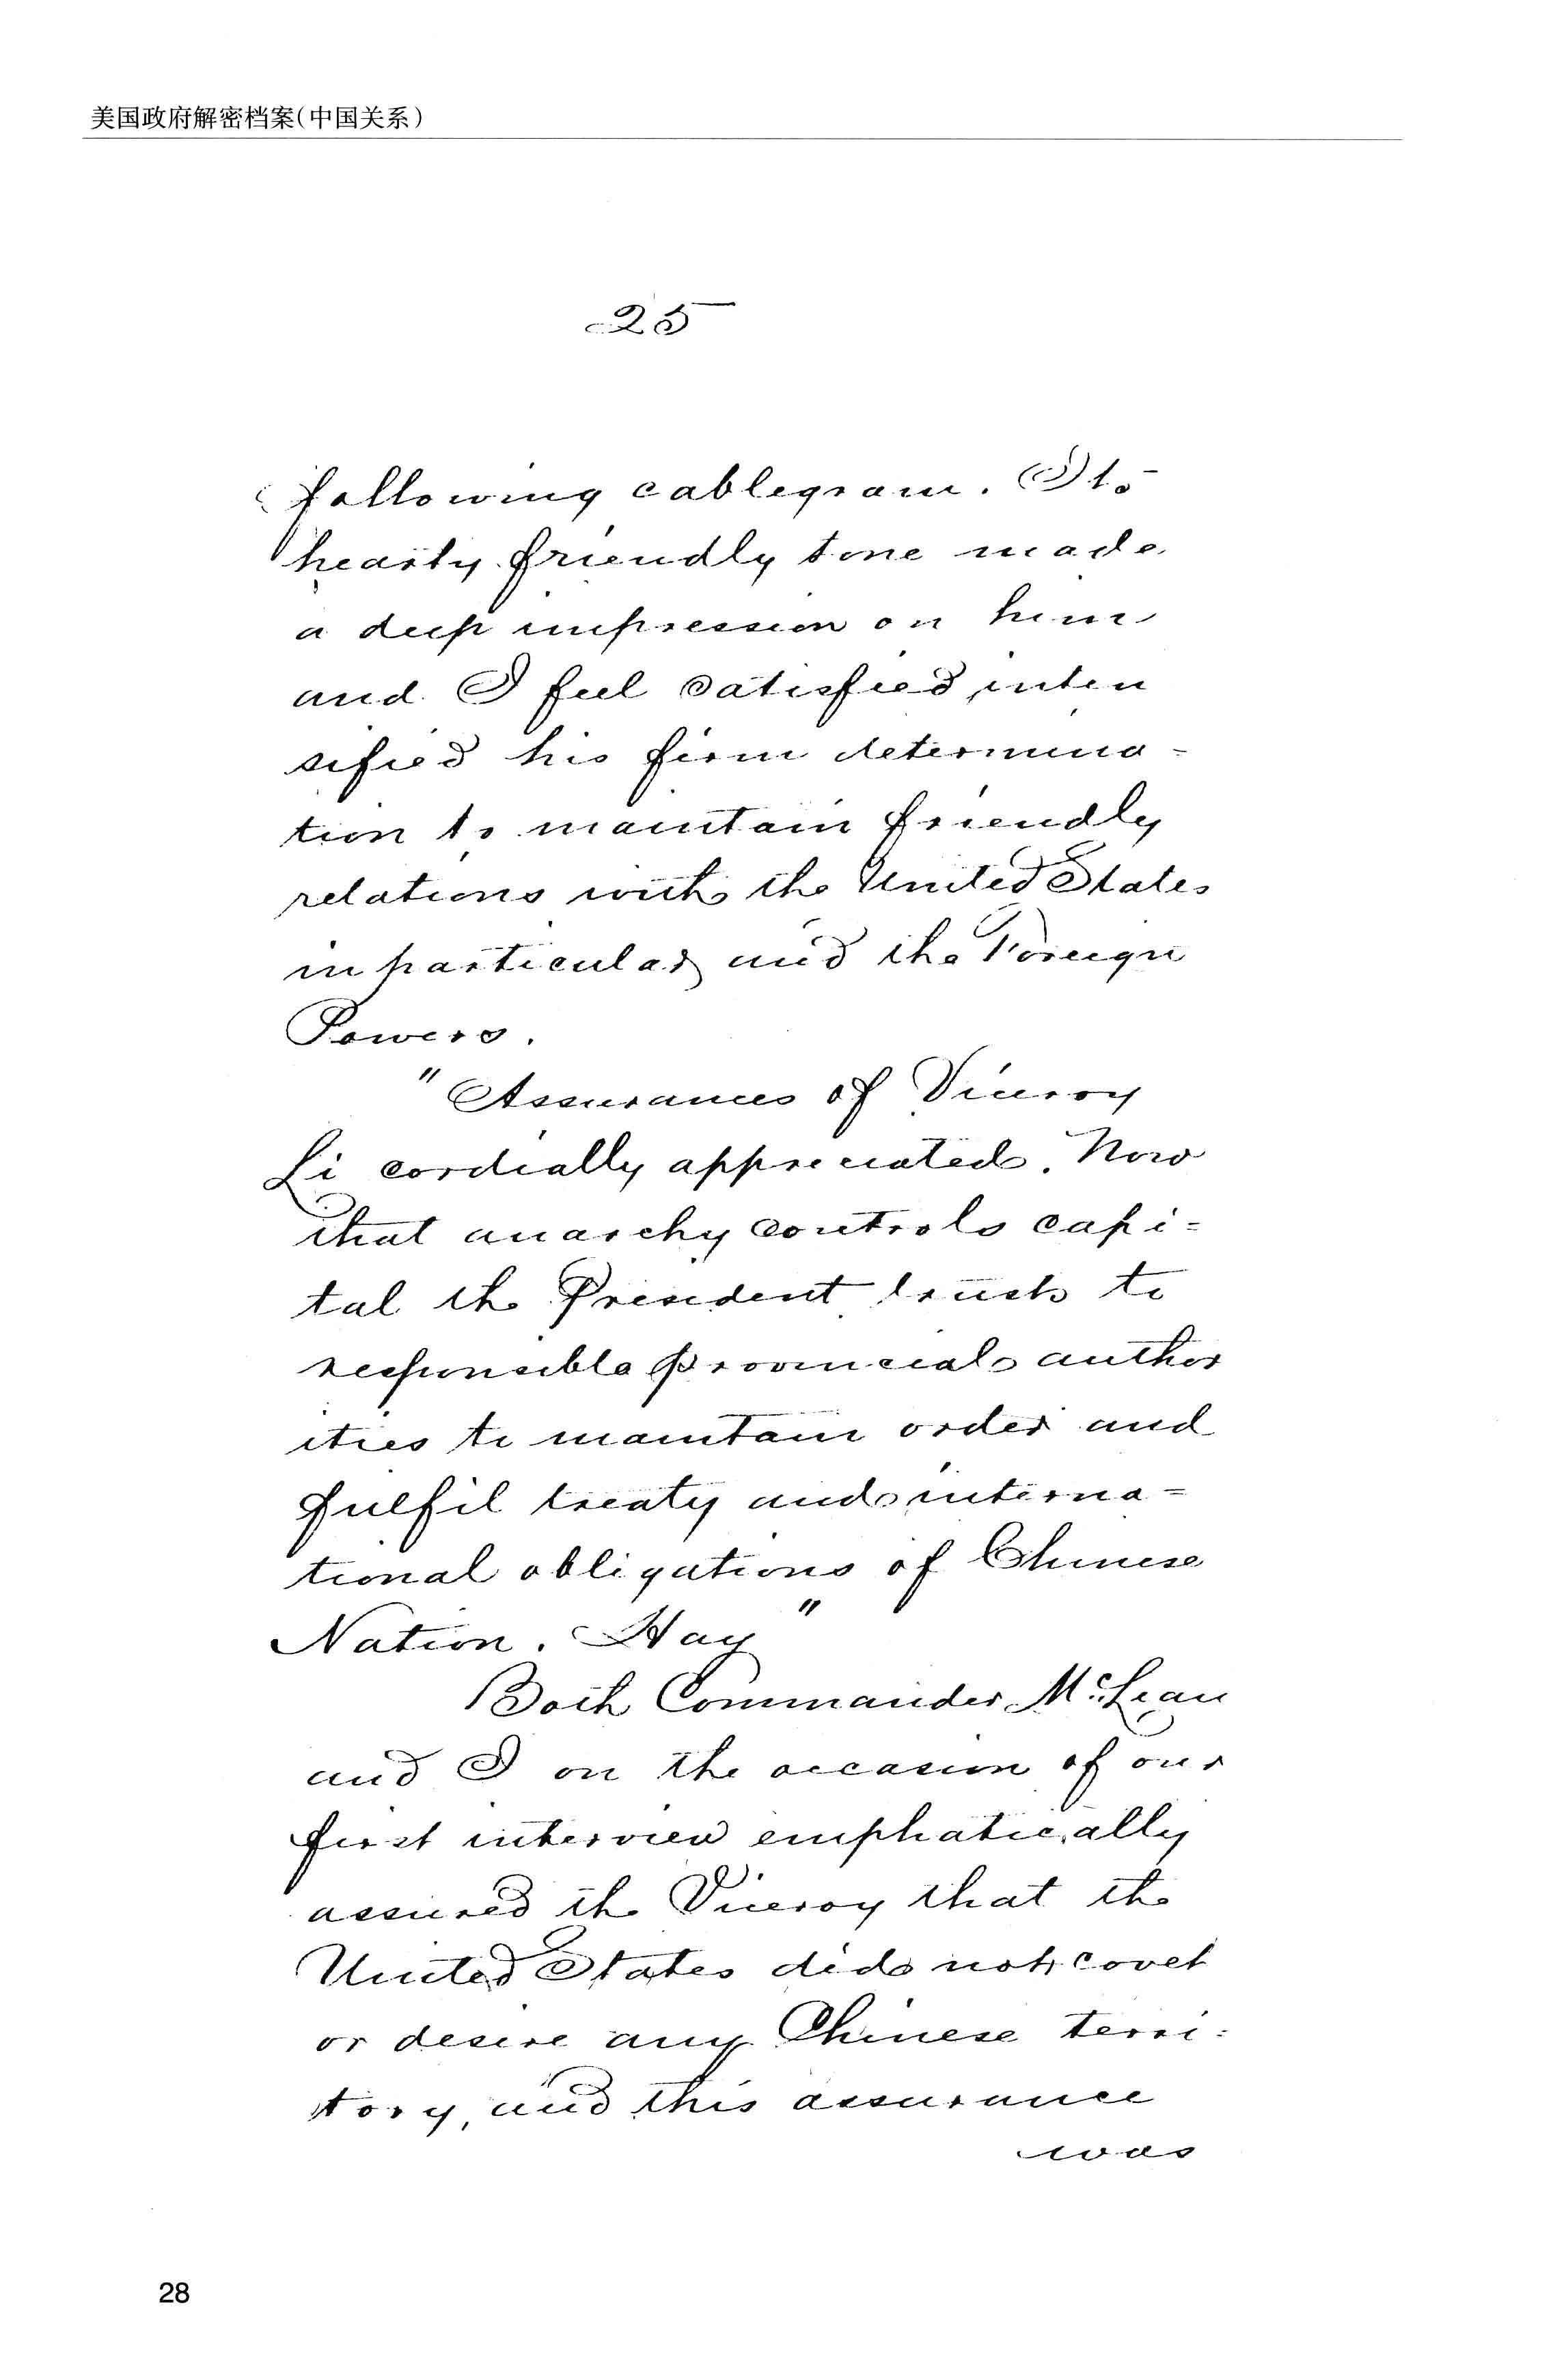 美国政府解密档案(中国关系)
25
following cablegram. Its
hearty friendly tone made
a deep impression on him
and I feel satisfied, inten
sified his firm determina-
tion to maintain friendly
relations with the United States
in particular and the Foreign
Powers.
"Assurances of Viceroy
Li cordially appreciated. Now
that anarchy controls capi-
tal the President trusts to
responsible provincial author
ities to maintain order and
fulfil treaty and interna-
tional obligations of Chinese
Nation. Hay"
Both Commander McLean
and I on the occasion of our
first interview emphatically
assured the Viceroy that the
United States did not covet
or desire any Chinese terri-
tory, and this assurance
was
28